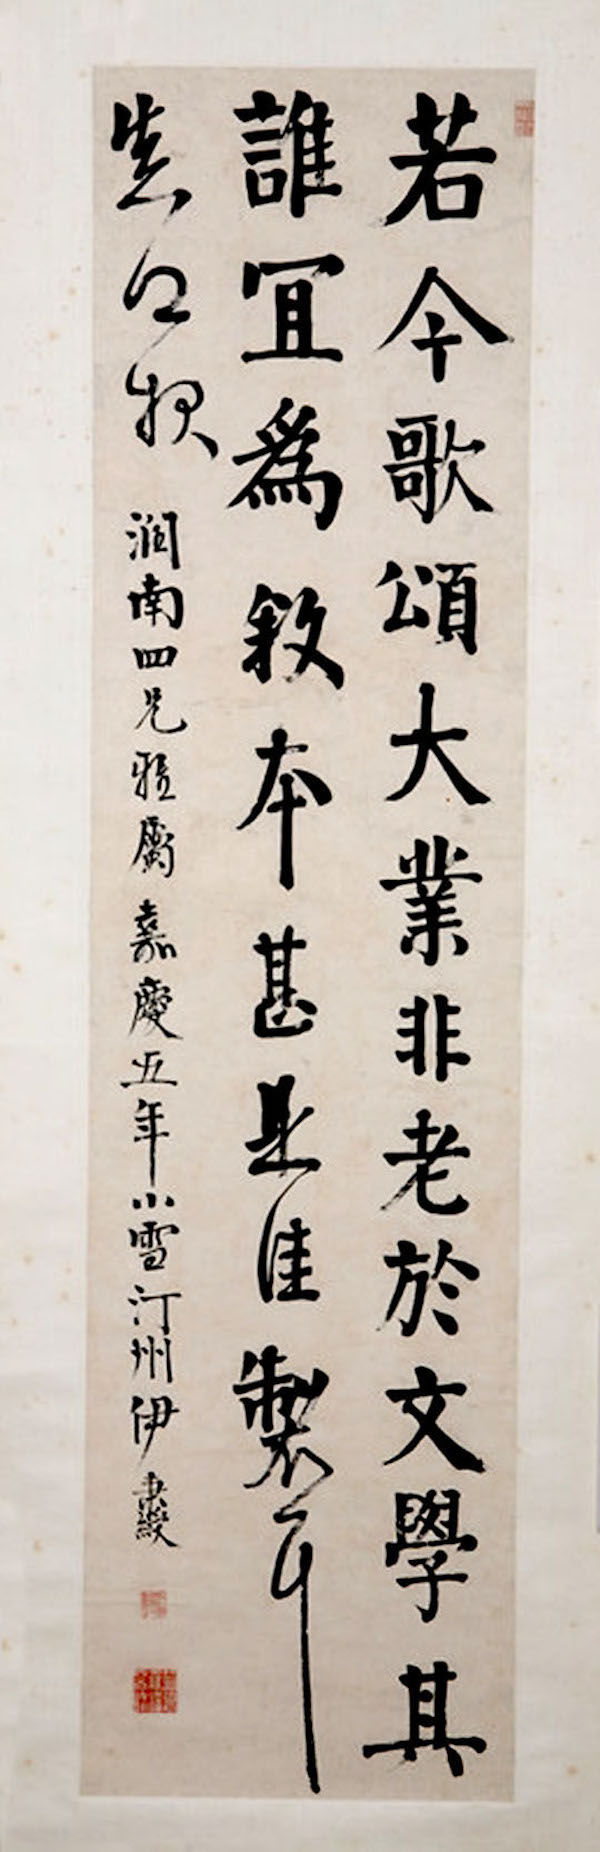 若今歌頌大業非老於文學其
誰冝爲敘本甚是佳製耳
真卿報
南四兄雅屬嘉慶五年小雪汀州伊秉綬